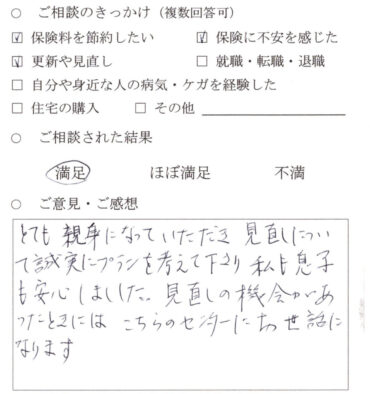 ○ ご相談のきっかけ（複数回答可）
☑ 保険料を節約したい ☑ 保険に不安を感じた
☑ 更新や見直し □ 就職・転職・退職
□ 自分や身近な人の病気・ケガを経験した
□ 住宅の購入 □ その他
○ ご相談された結果
満足 ほぼ満足 不満
○ ご意見・ご感想
とても 親身になっていただき 見直しについ
て誠実にプランを考えて下さり 私も息子
も安心しました。見直しの機会があ
ったときには こちらのセンターにお世話に
なります